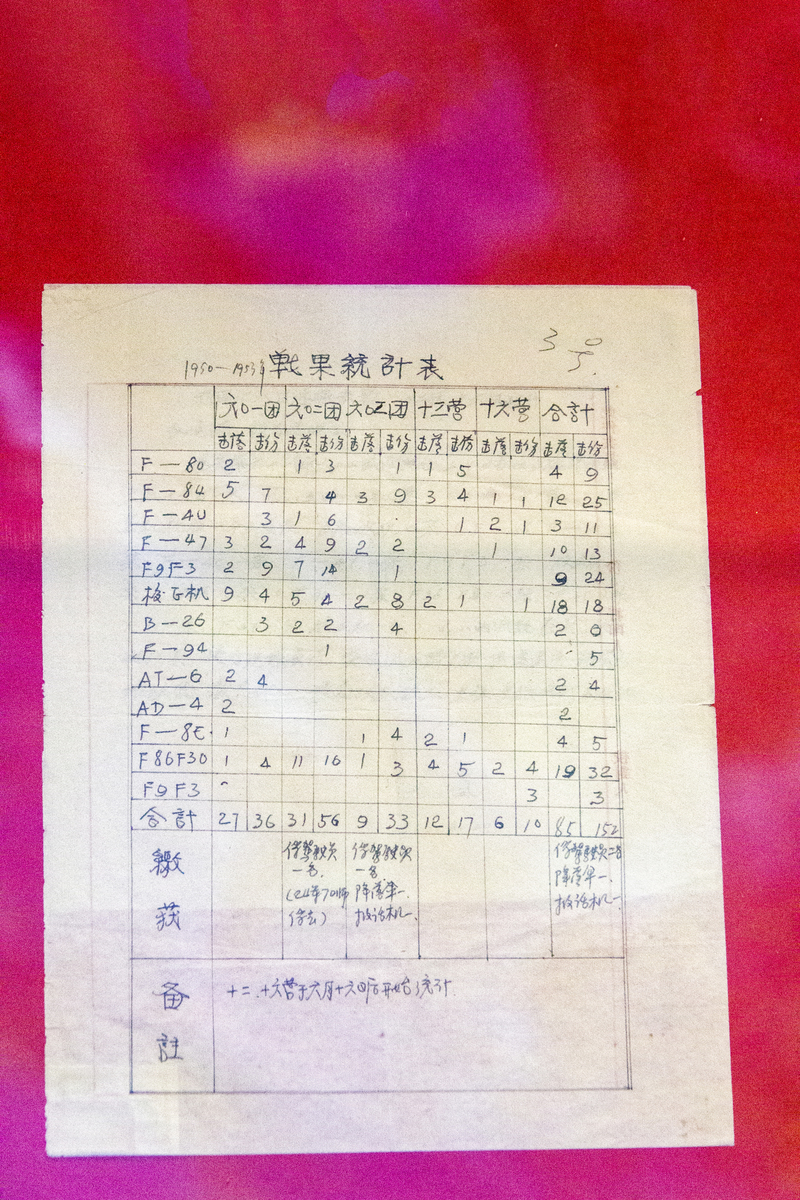 30
5.
1950—1953年 戰果統計表
六〇一团 六〇二团 六〇三团 十三营 十六营 合計
击落 击伤 击落 击伤 击落 击伤 击落 击伤 击落 击伤 击落 击伤
F—80 2 1 3 1 1 5 4 9
F—84 5 7 4 3 9 3 4 1 1 12 25
F—4U 3 1 6 1 2 1 3 11
F—47 3 2 4 9 2 2 1 10 13
F9F3 2 9 7 14 1 9 24
校正机 9 4 5 4 2 8 2 1 1 18 18
B—26 3 2 2 4 2
F—94 1 5
AT—6 2 4 2 4
AD—4 2 2
F—8E 1 1 4 2 1 4 5
F86F30 1 4 11 16 1 3 4 5 2 4 19 32
F9F3 3 3
合計 27 36 31 56 9 33 12 17 6 10 85 152
繳获
俘驾驶员一名.
俘驾驶员一名
降落伞一.
报话机一.
俘驾驶员二名
降落伞一.
报话机一.
备註
十二.十六营于六月十六日后开始统计.